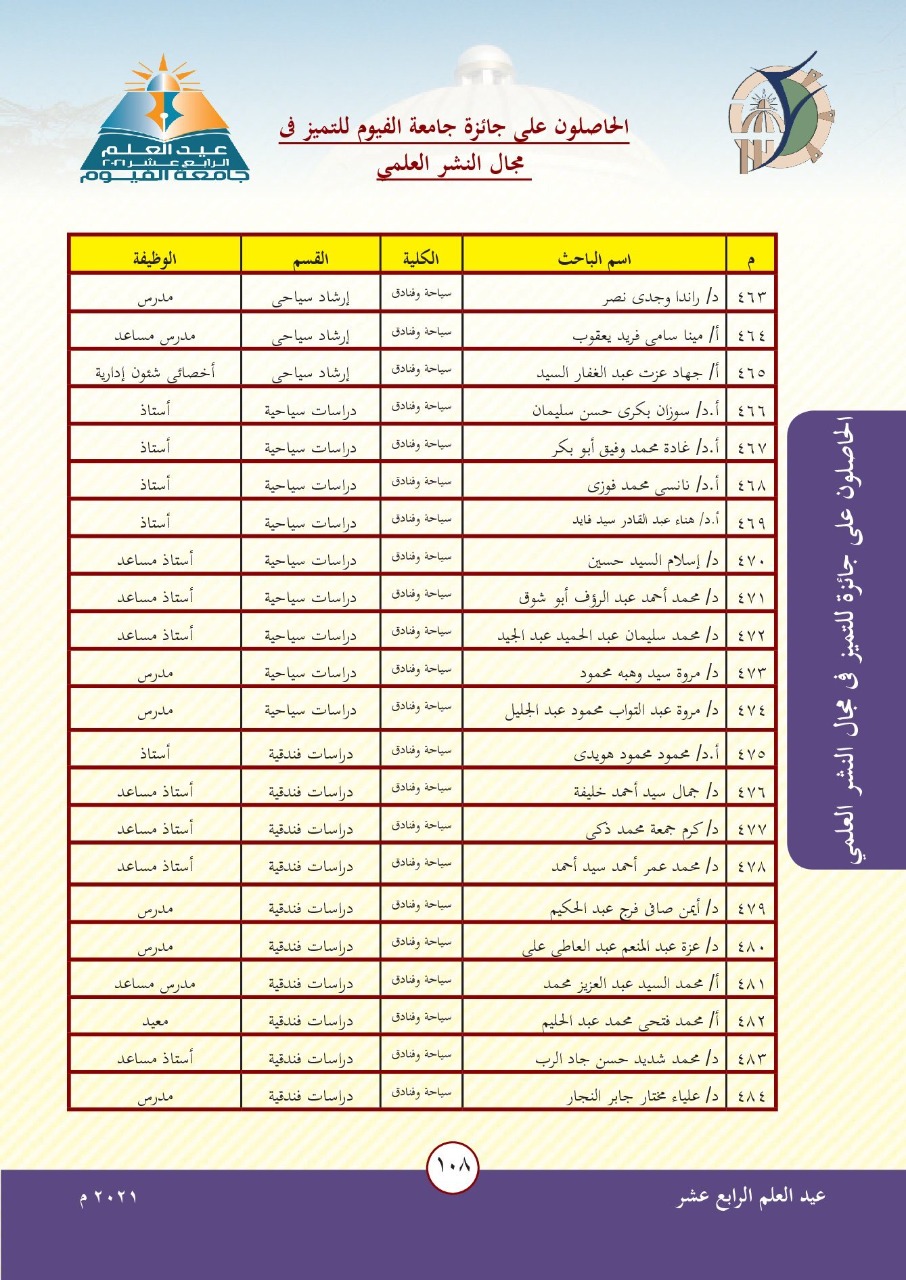 عيد العلم
الرابع عشر ٢٠٢١
جامعة الفيوم
الحاصلون على جائزة جامعة الفيوم للتميز فى
مجال النشر العلمي
م اسم الباحث الكلية القسم الوظيفة
٤٦٣ د/ راندا وجدى نصر سياحة وفنادق إرشاد سياحى مدرس
٤٦٤ أ/ مينا سامى فريد يعقوب سياحة وفنادق إرشاد سياحى مدرس مساعد
٤٦٥ أ/ جهاد عزت عبد الغفار السيد سياحة وفنادق إرشاد سياحى أخصائى شئون إدارية
٤٦٦ أ.د/ سوزان بكرى حسن سليمان سياحة وفنادق دراسات سياحية أستاذ
٤٦٧ أ.د/ غادة محمد وفيق أبو بكر سياحة وفنادق دراسات سياحية أستاذ
٤٦٨ أ.د/ نانسى محمد فوزى سياحة وفنادق دراسات سياحية أستاذ
٤٦٩ أ.د/ هناء عبد القادر سيد فايد سياحة وفنادق دراسات سياحية أستاذ
٤٧٠ د/ إسلام السيد حسين سياحة وفنادق دراسات سياحية أستاذ مساعد
٤٧١ د/ محمد أحمد عبد الرؤف أبو شوق سياحة وفنادق دراسات سياحية أستاذ مساعد
٤٧٢ د/ محمد سليمان عبد الحميد عبد الجيد سياحة وفنادق دراسات سياحية أستاذ مساعد
٤٧٣ د/ مروة سيد وهبه محمود سياحة وفنادق دراسات سياحية مدرس
٤٧٤ د/ مروة عبد التواب محمود عبد الجليل سياحة وفنادق دراسات سياحية مدرس
٤٧٥ أ.د/ محمود محمود هويدى سياحة وفنادق دراسات فندقية أستاذ
٤٧٦ د/ جمال سيد أحمد خليفة سياحة وفنادق دراسات فندقية أستاذ مساعد
٤٧٧ د/ كرم جمعة محمد ذكى سياحة وفنادق دراسات فندقية أستاذ مساعد
٤٧٨ د/ محمد عمر أحمد سيد أحمد سياحة وفنادق دراسات فندقية أستاذ مساعد
٤٧٩ د/ أيمن صافى فرج عبد الحكيم سياحة وفنادق دراسات فندقية مدرس
٤٨٠ د/ عزة عبد المنعم عبد العاطى على سياحة وفنادق دراسات فندقية مدرس
٤٨١ أ/ محمد السيد عبد العزيز محمد سياحة وفنادق دراسات فندقية مدرس مساعد
٤٨٢ أ/ محمد فتحى محمد عبد الحليم سياحة وفنادق دراسات فندقية معيد
٤٨٣ د/ محمد شديد حسن جاد الرب سياحة وفنادق دراسات فندقية أستاذ مساعد
٤٨٤ د/ علياء مختار جابر النجار سياحة وفنادق دراسات فندقية مدرس
الحاصلون على جائزة للتميز فى مجال النشر العلمي
١٠٨
عيد العلم الرابع عشر
٢٠٢١ م